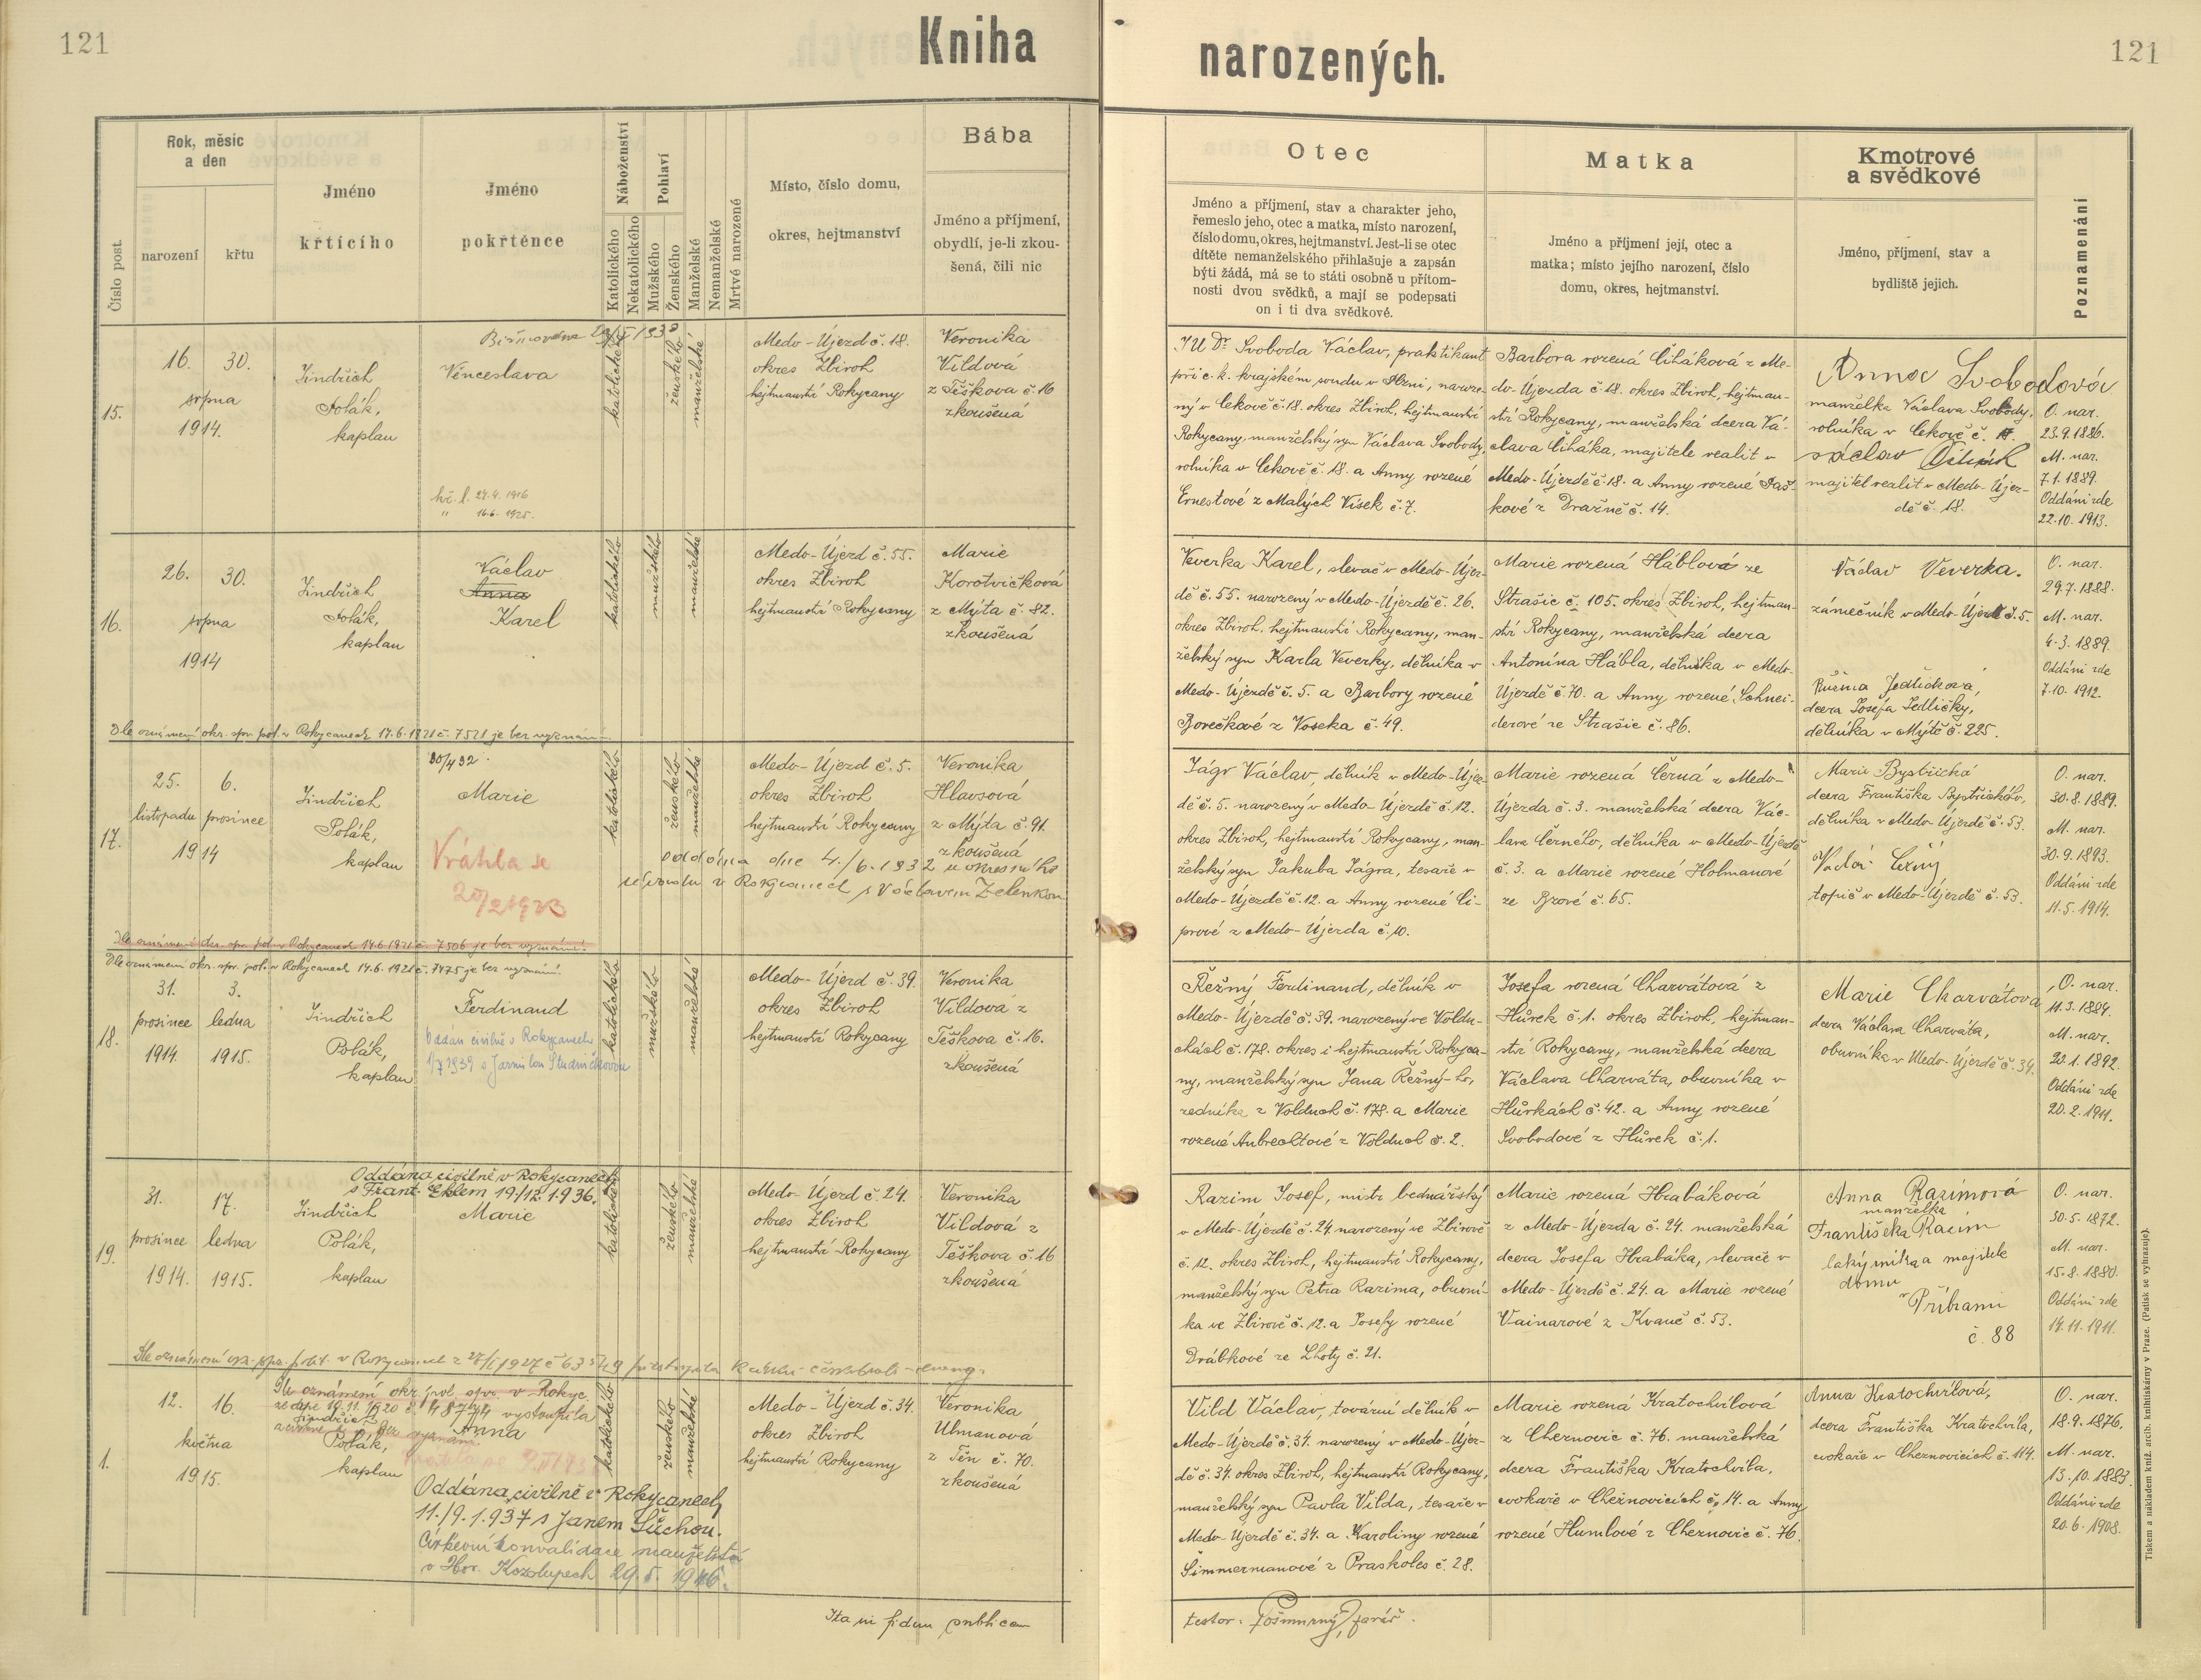 121
Kniha
narozených.
121
Číslo post.
Rok, měsíc
a den
narození
křtu
Jméno
křtícího
Jméno
pokřtěnce
Náboženství
Katolického
Nekatolického
Pohlaví
Mužského
Ženského
Manželské
Nemanželské
Mrtvě narozené
Místo, číslo domu,
okres, hejtmanství
Bába
Jméno a příjmení,
obydlí, je-li zkou-
šená, čili nic
Otec
Jméno a příjmení, stav a charakter jeho,
řemeslo jeho, otec a matka, místo narození,
číslo domu, okres, hejtmanství. Jest-li se otec
dítěte nemanželského přihlašuje a zapsán
býti žádá, má se to státi osobně u přítom-
nosti dvou svědků, a mají se podepsati
on i ti dva svědkové.
Matka
Jméno a příjmení její, otec a
matka; místo jejího narození, číslo
domu, okres, hejtmanství.
Kmotrové
a svědkové
Jméno, příjmení, stav a
bydliště jejich.
Poznamenání
15.
16. 30.
srpna
1914.
Jindřich
Polák,
kaplan
Věnceslava
kř. l. 24.4. 1916
" 16.6. 1925.
katolického
ženského
manželské
Medo-Újezd č. 18.
okres Zbiroh
hejtmanství Rokycany
Veronika
Vildová
z Těškova č. 16
zkoušená
JUDr. Svoboda Václav, praktikant
při c. k. krajském soudu v Plzni, naroze-
ný v Cekově č. 18. okres Zbiroh, hejtmanství
Rokycany, manželský syn Václava Svobody,
rolníka v Cekově č. 18. a Anny rozené
Ernestové z Malých Vísek č. 7.
Barbora rozená Čiháková z Me-
do-Újezda č. 18. okres Zbiroh, hejtman-
ství Rokycany, manželská dcera Vá-
clava Čiháka, majitele realit v
Medo-Újezdě č. 18. a Anny rozené Paš-
kové z Dražně č. 14.
Anna Svobodová
manželka Václava Svobody,
rolníka v Cekově č.
Václav Čihák
majitel realit v Medo-Újez-
dě č. 18.
O. nar.
23.9.1886.
M. nar.
7.1.1889.
Oddáni zde
22.10.1913.
16.
26. 30.
srpna
1914
Jindřich
Polák,
kaplan
Václav
Anna
Karel
katolického
mužského
manželské
Medo-Újezd č. 55.
okres Zbiroh
hejtmanství Rokycany
Marie
Korotvičková
z Mýta č. 82.
zkoušená
Veverka Karel, slevač v Medo-Újez-
dě č. 55. narozený v Medo-Újezdě č. 26.
okres Zbiroh, hejtmanství Rokycany, man-
želský syn Karla Veverky, dělníka v
Medo-Újezdě č. 5. a Barbory rozené
Borečkové z Voseka č. 49.
Marie rozená Háblová ze
Strašic č. 105. okres Zbiroh, hejtman-
ství Rokycany, manželská dcera
Antonína Hábla, dělníka v Medo-
Újezdě č. 70. a Anny rozené Schnei-
derové ze Strašic č. 86.
Václav Veverka.
zámečník v Medo-Újezdě č. 5.
Růžena Jedličková,
dcera Josefa Jedličky,
dělníka v Mýtě č. 225.
O. nar.
29.7.1888.
M. nar.
4.3.1889.
Oddáni zde
7.10.1912.
Dle oznámení okr. spr. pol. v Rokycanech 14.6.1921 č. 7521 je bez vyznání.
17.
25. 6.
listopadu prosince
1914
Jindřich
Polák,
kaplan
30/4 32.
Marie
Vrátila se
katolického
ženského
manželské
Medo-Újezd č. 5.
okres Zbiroh
hejtmanství Rokycany
Veronika
Hlavsová
z Mýta č. 91.
zkoušená
oddána dne 4./6. 1932 u okresního
v Rokycanech s Václavem Zelenkou
Jágr Václav, dělník v Medo-Újez-
dě č. 5. narozený v Medo-Újezdě č. 12.
okres Zbiroh, hejtmanství Rokycany, man-
želský syn Jakuba Jágra, tesaře v
Medo-Újezdě č. 12. a Anny rozené Či-
prové z Medo-Újezda č. 10.
Marie rozená Černá z Medo-
Újezda č. 3. manželská dcera Vác-
lava Černého, dělníka v Medo-Újezdě
č. 3. a Marie rozené Holmanové
ze Brové č. 65.
Marie Bystřická
dcera Františka Bystřického,
dělníka v Medo-Újezdě č. 53.
topič v Medo-Újezdě č. 53.
O. nar.
30.8.1889.
M. nar.
30.9.1893.
Oddáni zde
11.5.1914.
Dle oznámení okr. spr. pol. v Rokycanech 14.6.1921 č. 7506 je bez vyznání.
Dle oznámení okr. spr. pol. v Rokycanech 14.6.1921 č. 7475 je bez vyznání.
18.
31. 3.
prosince ledna
1914. 1915.
Jindřich
Polák,
kaplan
Ferdinand
Oddán civilně v Rokycanech
1/7 1939 s Jarmilou Studničkovou
katolického
mužského
manželské
Medo-Újezd č. 39.
okres Zbiroh
hejtmanství Rokycany
Veronika
Vildová z
Těškova č. 16.
zkoušená
Řežný Ferdinand, dělník v
Medo-Újezdě č. 39. narozený ve Voldu-
chách č. 178. okres i hejtmanství Rokyca-
ny, manželský syn Jana Řežný-ho,
zedníka z Volduch č. 178. a Marie
rozené Aubrechtové z Volduch č. 2.
Josefa rozená Charvátová z
Hůrek č. 1. okres Zbiroh, hejtman-
ství Rokycany, manželská dcera
Václava Charváta, obuvníka v
Hůrkách č. 42. a Anny rozené
Svobodové z Hůrek č. 1.
Marie Charvátova
dcera Václava Charváta,
obuvníka v Medo-Újezdě č. 34.
O. nar.
11.3.1884.
M. nar.
20.1.1892.
Oddáni zde
20.2.1911.
19.
31. 17.
prosince ledna
1914. 1915.
Oddána civilně v Rokycanech
s Frant. Eklem 19/12. 1936.
Jindřich
Polák,
kaplan
Marie
katolického
ženského
manželské
Medo-Újezd č. 24.
okres Zbiroh
hejtmanství Rokycany
Veronika
Vildová z
Těškova č. 16
zkoušená
Razim Josef, mistr bednářský
v Medo-Újezdě č. 24. narozený ve Zbirově
č. 12. okres Zbiroh, hejtmanství Rokycany,
manželský syn Petra Razima, obuvní-
ka ve Zbirově č. 12. a Josefy rozené
Drábkové ze Lhoty č. 21.
Marie rozená Hrabáková
z Medo-Újezda č. 24. manželská
dcera Josefa Hrabáka, slevače v
Medo-Újezdě č. 24. a Marie rozené
Vainarové z Kvaně č. 53.
Anna Razimová
manželka
Františeka Razim
lakýrníka a majitele
domu
v Příbrami
č. 88
O. nar.
30.5.1872.
M. nar.
15.8.1880.
Oddáni zde
14.11.1911.
1.
12. 16.
května
1915.
Dle oznámení okr. pol. spr. v Rokyc.
Jindřich
Polák,
kaplan
Anna
Oddána civilně v Rokycanech
11./9. 1937 s Janem Suchou.
Církevní konvalidace manželství
v Hor. Kozolupech 29. 5. 1946.
katolického
ženského
manželské
Medo-Újezd č. 34.
okres Zbiroh
hejtmanství Rokycany
Veronika
Ulmanová
z Těn č. 70.
zkoušená
Vild Václav, tovární dělník v
Medo-Újezdě č. 34. narozený v Medo-Újez-
dě č. 34. okres Zbiroh, hejtmanství Rokycany,
manželský syn Pavla Vilda, tesaře v
Medo-Újezdě č. 34. a Karoliny rozené
Šimmermanové z Praskoles č. 28.
Marie rozená Kratochvílová
z Cheznovic č. 76. manželská
dcera Františka Kratochvíla,
cvokaře v Cheznovicích č. 14. a Anny
rozené Humlové z Cheznovic č. 76.
Anna Kratochvílová,
dcera Františka Kratochvíla,
cvokaře v Cheznovicích č. 114.
O. nar.
18.9.1876.
M. nar.
13.10.1883.
Oddáni zde
20.6.1908.
Ita in fidem publicam
testor: Pošmurný, farář.
Tiskem a nákladem kníž. arcib. knihtiskárny v Praze. (Patisk se vyhrazuje).